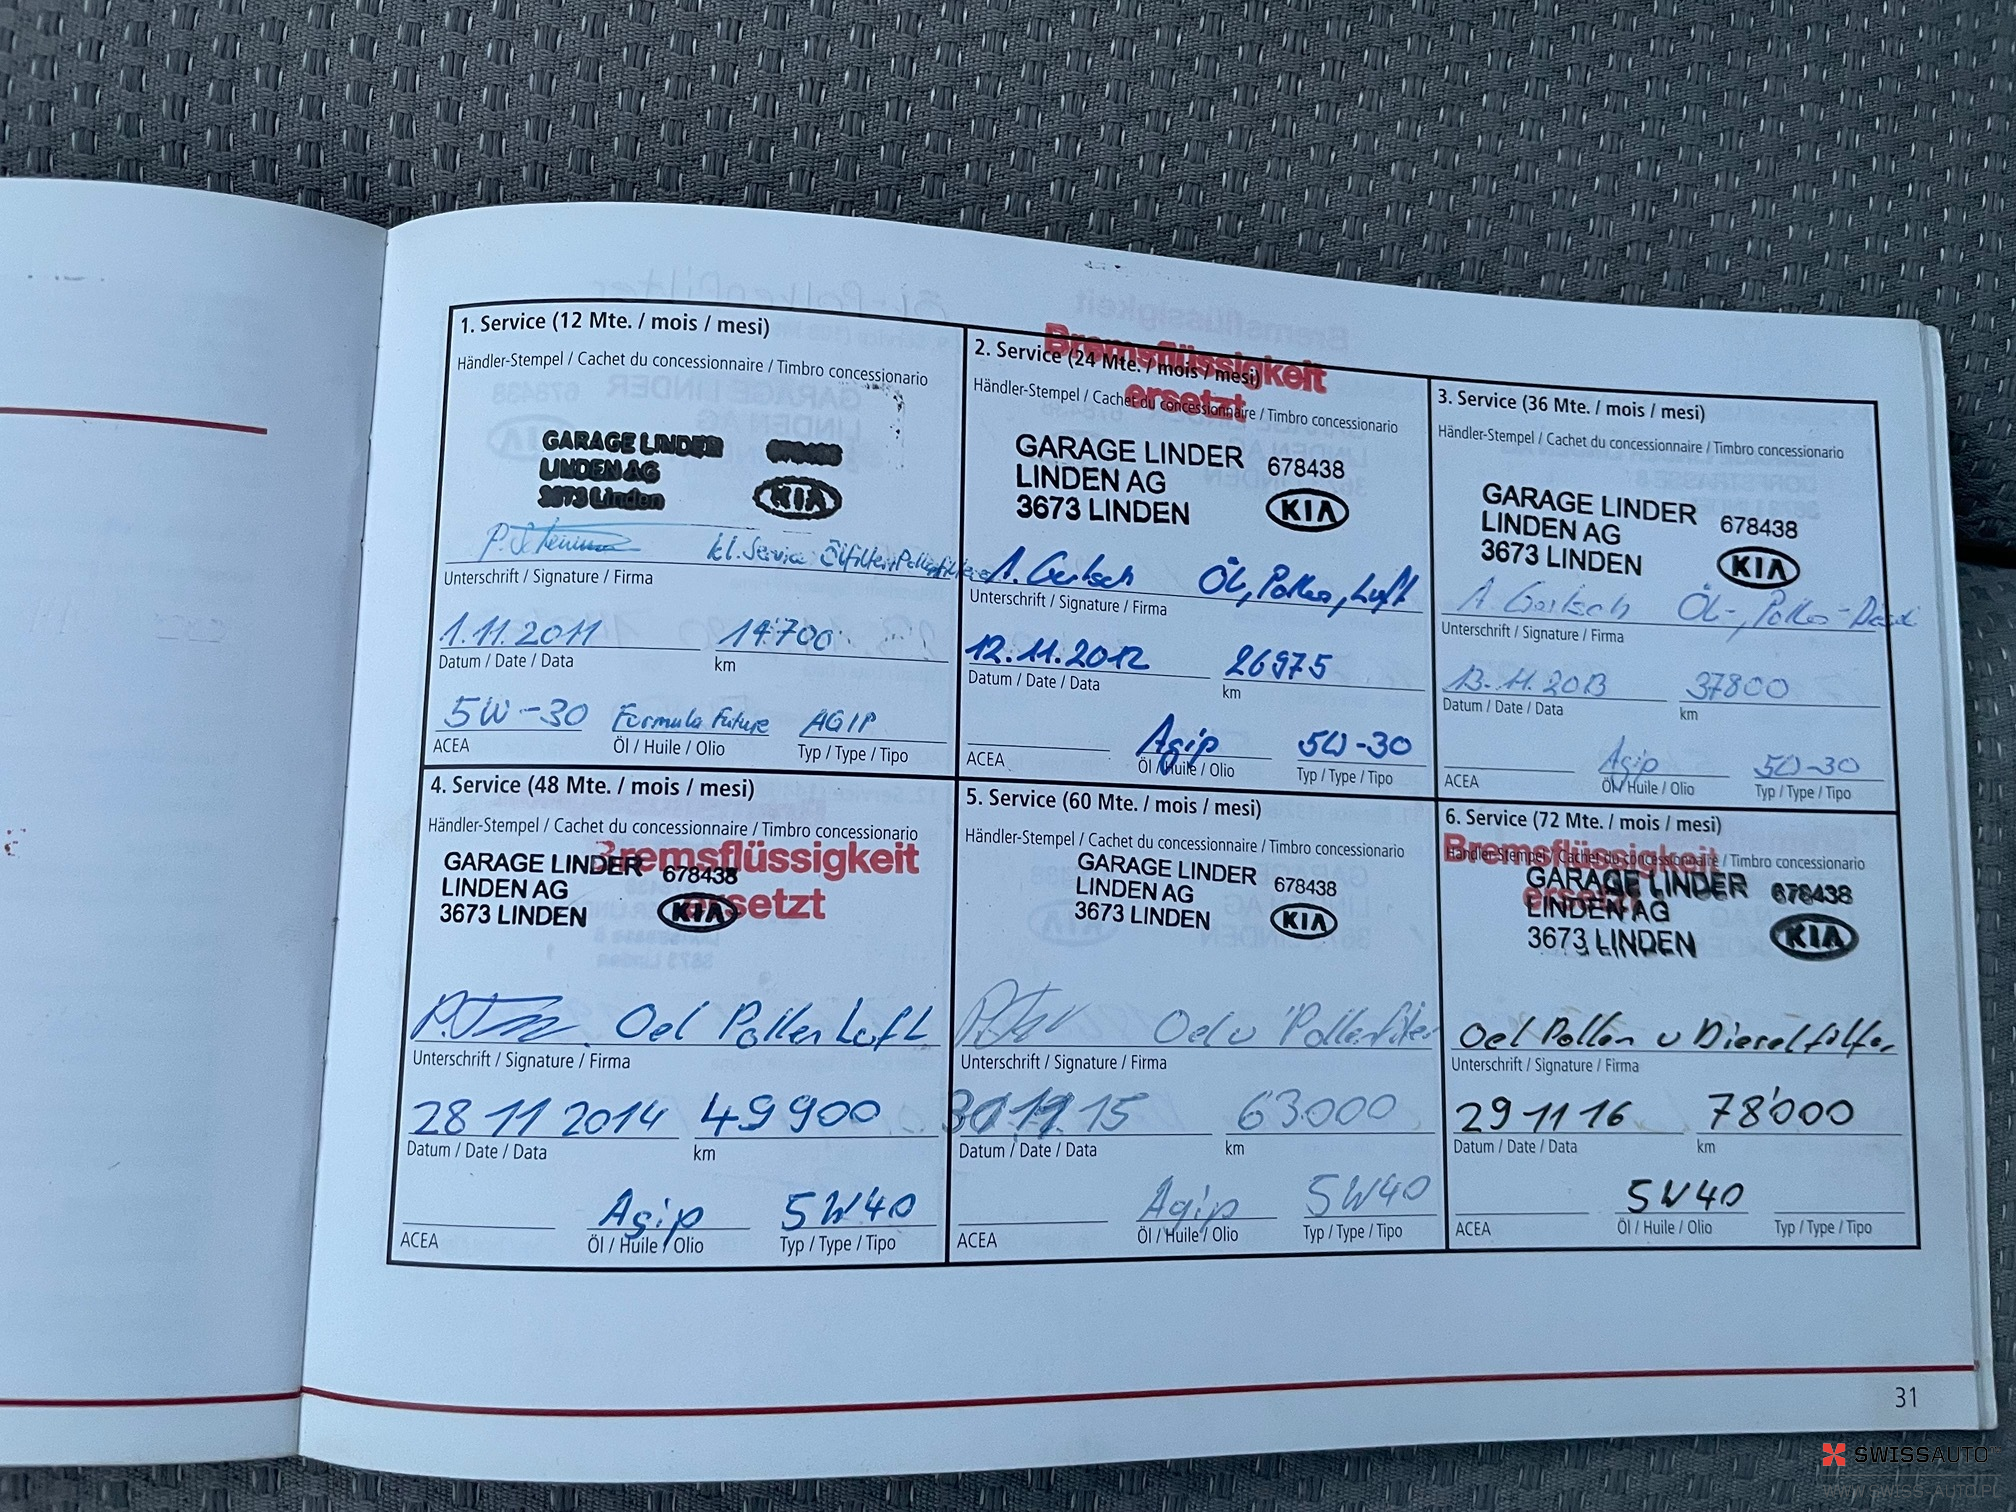 1. Service (12 Mte. / mois / mesi)
Händler-Stempel / Cachet du concessionnaire / Timbro concessionario
GARAGE LINDER 678438
LINDEN AG
3673 Linden KIA
kl. Service Ölfilter, Pollenfilter
Unterschrift / Signature / Firma
1.11.2011 14'700
Datum / Date / Data km
5W-30 Formula Future AGIP
ACEA Öl / Huile / Olio Typ / Type / Tipo
2. Service (24 Mte. / mois / mesi)
Bremsflüssigkeit
ersetzt
Händler-Stempel / Cachet du concessionnaire / Timbro concessionario
GARAGE LINDER 678438
LINDEN AG
3673 LINDEN KIA
A. Gertsch Öl, Pollen, Luft
Unterschrift / Signature / Firma
12.11.2012 26975
Datum / Date / Data km
Agip 5W-30
ACEA Öl / Huile / Olio Typ / Type / Tipo
3. Service (36 Mte. / mois / mesi)
Händler-Stempel / Cachet du concessionnaire / Timbro concessionario
GARAGE LINDER 678438
LINDEN AG
3673 LINDEN KIA
A. Gertsch Öl-, Pollen-
Unterschrift / Signature / Firma
13.11.2013 37800
Datum / Date / Data km
Agip 5W-30
ACEA Öl / Huile / Olio Typ / Type / Tipo
4. Service (48 Mte. / mois / mesi)
Händler-Stempel / Cachet du concessionnaire / Timbro concessionario
Bremsflüssigkeit
ersetzt
GARAGE LINDER 678438
LINDEN AG
3673 LINDEN KIA
Oel Pollen Luft
Unterschrift / Signature / Firma
28 11 2014 49900
Datum / Date / Data km
Agip 5W40
ACEA Öl / Huile / Olio Typ / Type / Tipo
5. Service (60 Mte. / mois / mesi)
Händler-Stempel / Cachet du concessionnaire / Timbro concessionario
GARAGE LINDER 678438
LINDEN AG
3673 LINDEN KIA
Oel u Pollenfilter
Unterschrift / Signature / Firma
30 11 15 63000
Datum / Date / Data km
Agip 5W40
ACEA Öl / Huile / Olio Typ / Type / Tipo
6. Service (72 Mte. / mois / mesi)
Bremsflüssigkeit
ersetzt
Händler-Stempel / Cachet du concessionnaire / Timbro concessionario
GARAGE LINDER 678438
LINDEN AG
3673 LINDEN KIA
Oel Pollen u Dieselfilter
Unterschrift / Signature / Firma
29 11 16 78'000
Datum / Date / Data km
5W40
ACEA Öl / Huile / Olio Typ / Type / Tipo
31
SWISSAUTO
WWW.SWISS-AUTO.PL